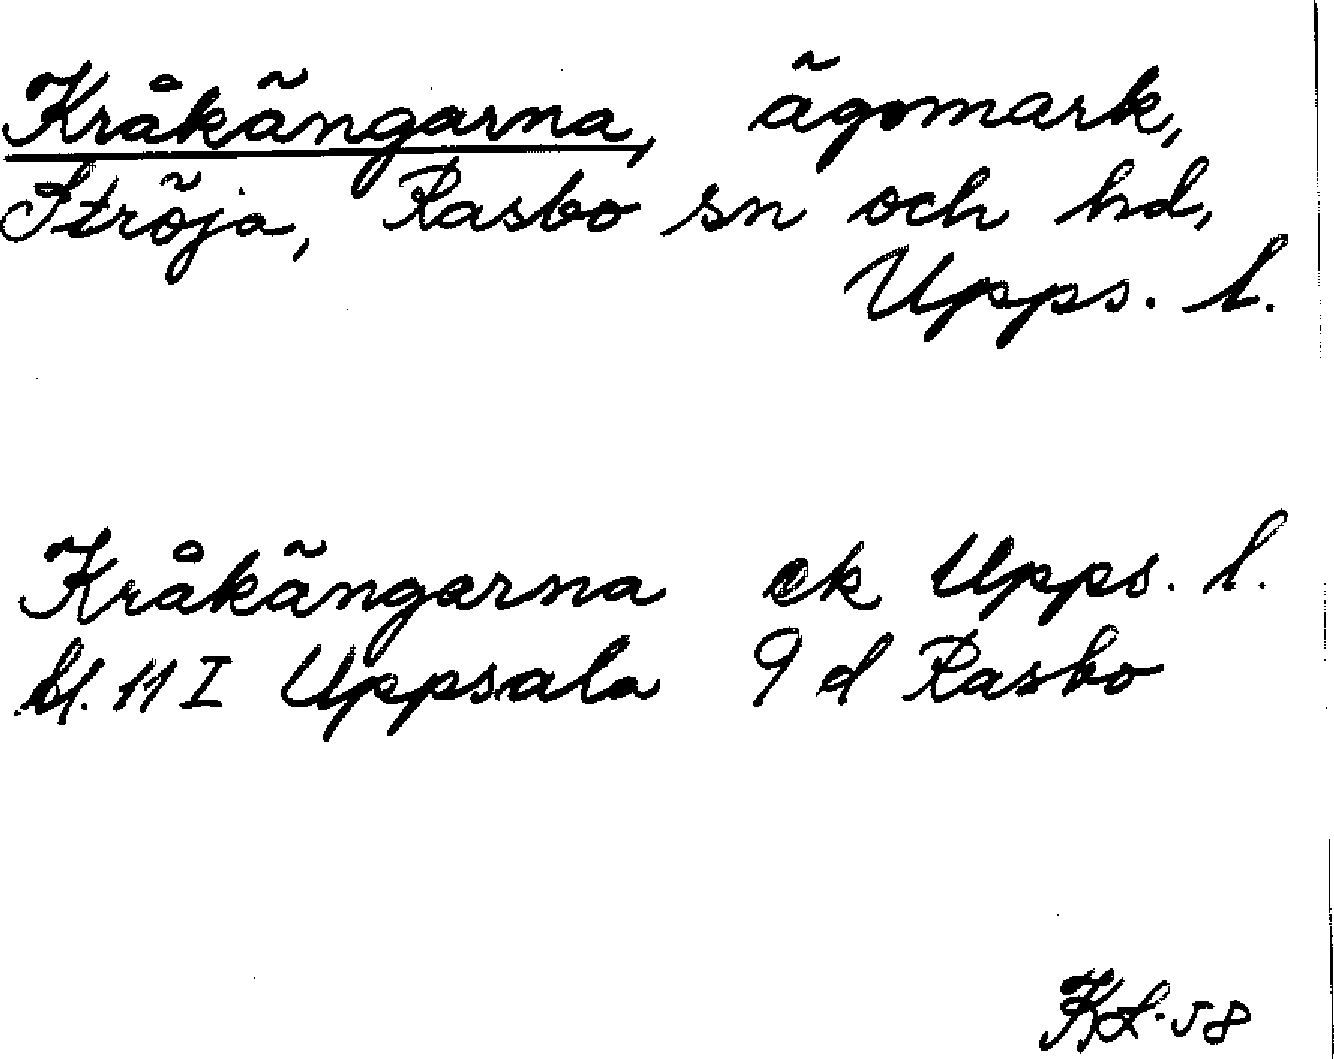 Kråkängarna, ägomark,
Ströja, Rasbo sn och hd,
Upps. l.
Kråkängarna ek Upps. l.
bl. 11 I Uppsala 9 d Rasbo
KL-58